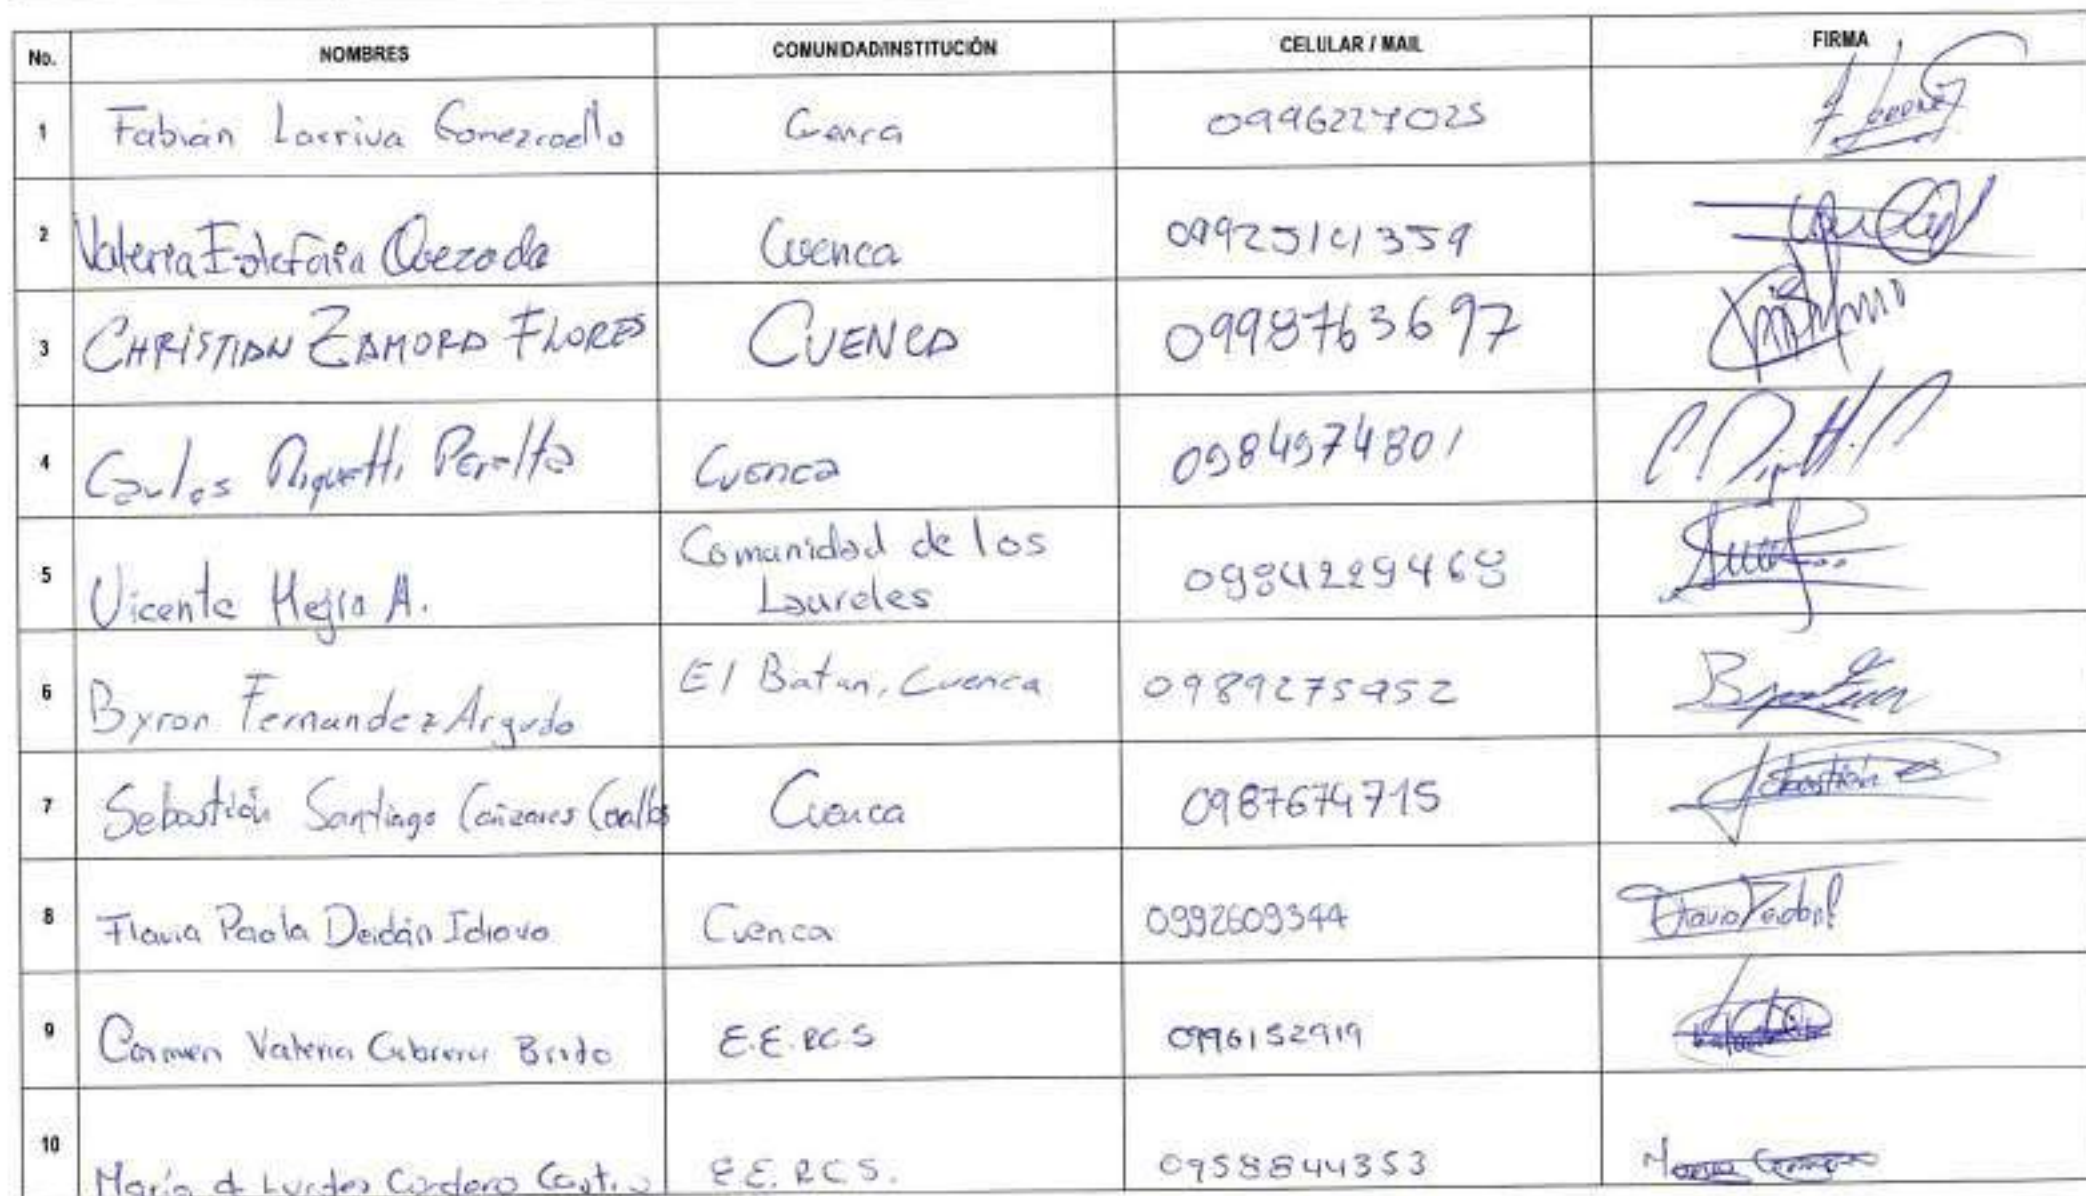 No. NOMBRES COMUNIDAD/INSTITUCIÓN CELULAR / MAIL FIRMA
1 Fabián Larriva Cuenca 0996227025
2 Valeria Estefanía Quezada Cuenca
3 CHRISTIAN ZAMORA FLORES CUENCA 0998763697
4 Carlos Riquetti Peralta Cuenca 0984974801
5 Vicente Mejía A. Comunidad de los
Laureles
6 Byron Fernandez Argudo El Batan, Cuenca 0989275952
7 Sebastián Santiago Cañizares Cuenca 0987674715
8 Flavia Paola Deidán Idrovo Cuenca 0992609344
9 Carmen Valeria Cabrera Brito E.E.RCS 0996152919
10 María d Lurdes Cordero Castro E.E.RCS. 0958844353